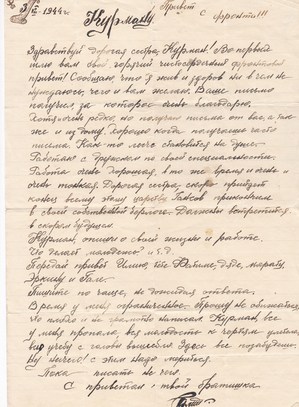 3/IV 1944г. Привет
Курману с фронта!!!
Здравствуй дорогая сестра, Курман! Во первых
шлю вам свой горячий чистосердечный фронтовой
привет! Сообщаю что я жив и здоров ни в чем не
нуждаюсь, чего и вам желаю. Ваше письмо
получил за которое очень благодарю.
Хотя очень редко, но получаю письма от вас, а так
же и из дому. Хорошо когда получаешь часто
письма. Как-то легче становится на душе.
Работаю с дружком по своей специальности.
Работа очень хорошая, в то же время и очень и
очень тонкая. Дорогая сестра, скоро придёт
конец всему этому царству Гансов прикончим
в своей собственной берлоге. Должны встретится
в скором будущем.
Курман, опиши о своей жизни и работе.
Что делает молодежь? и т.д.
Передай привет тёте дяде, марату,
Эркину и Гале
Пишите по чаще, не дожидая ответа.
Время у меня ограниченное, прошу не обижаться,
что плохо и не грамотно написал. Курман, все
у меня пропало, вся молодость к чертям улетела,
вид учебу с головы вышебло здесь все позабудешь.
Ну ничего! с этим надо мирится.
Пока писать не чего.
С приветом, твой братишка.